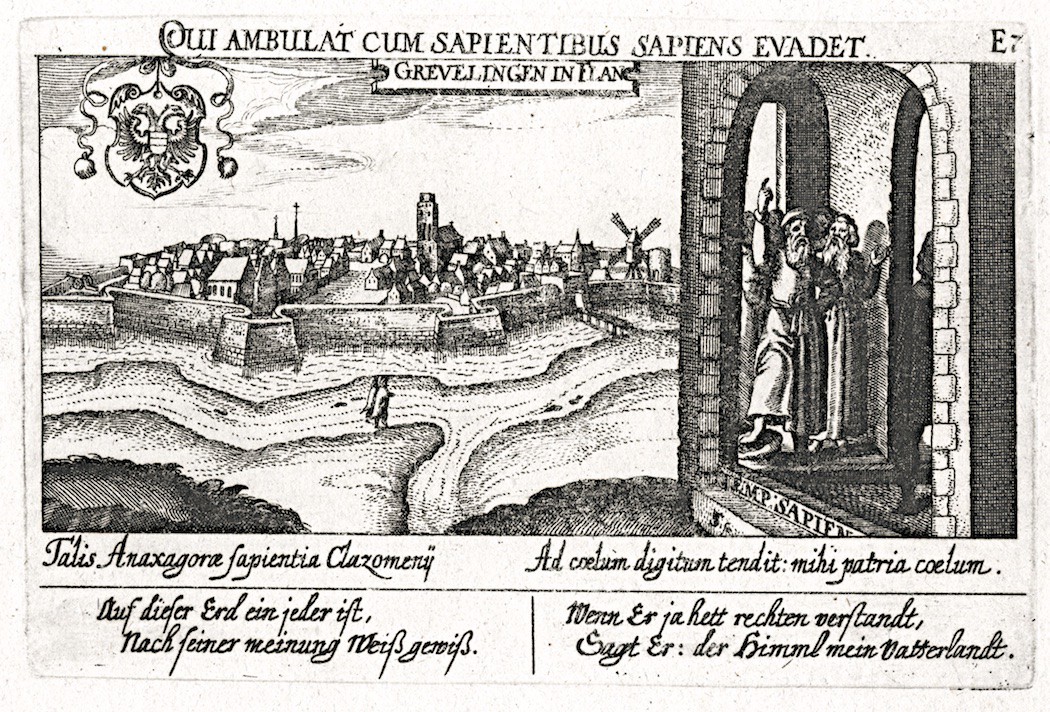 QUI AMBULAT CUM SAPIENTIBUS SAPIENS EVADET. E7
GREVELINGEN IN FLAN
TEMP: SAPIEN
Talis Anaxagoræ ſapientia Clazomenij
Ad cœlum digitum tendit: mihi patria cœlum.
Auf dieſer Erd ein jeder iſt,
Nach ſeiner meinung Weiß gewiß.
Wenn Er ja hett rechten verſtandt,
Sagt Er: der Himml mein Vatterlandt.